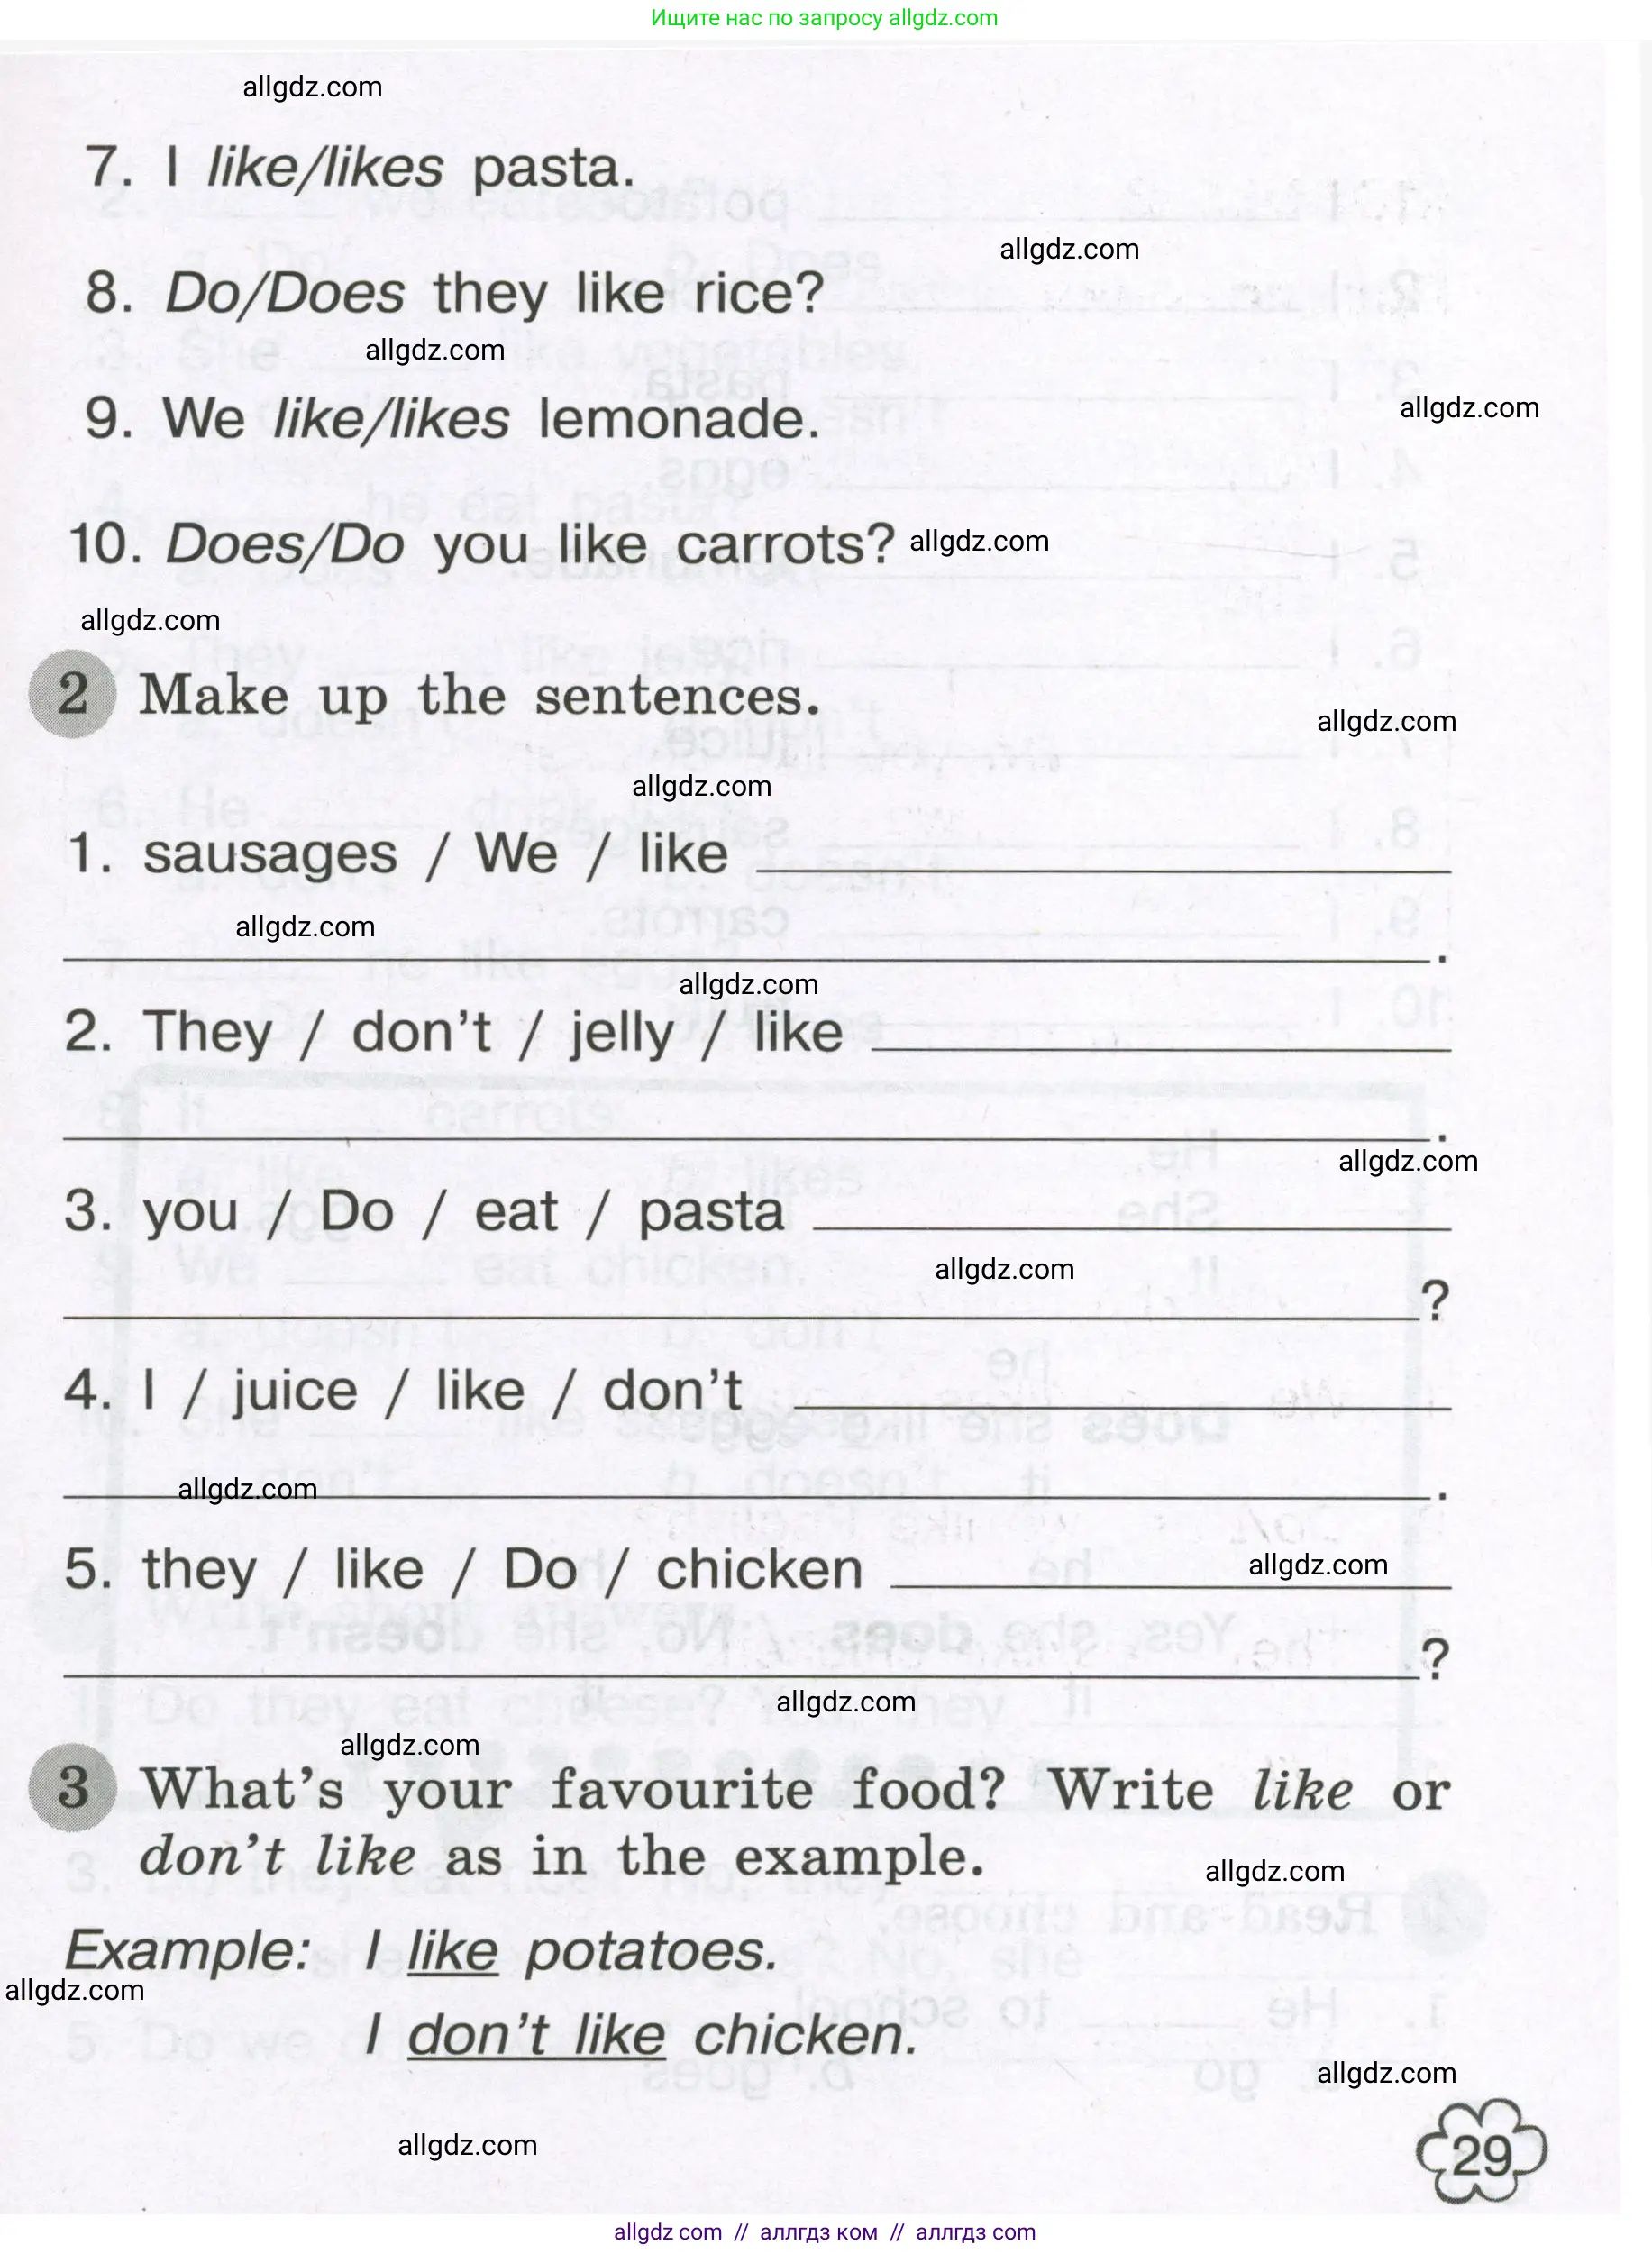 Ищите нас по запросу allgdz.com
allgdz.com
7. I like/likes pasta.
allgdz.com
8. Do/Does they like rice?
allgdz.com
allgdz.com
9. We like/likes lemonade.
10. Does/Do you like carrots? allgdz.com
allgdz.com
2 Make up the sentences.
allgdz.com
allgdz.com
1. sausages / We / like
allgdz.com
.
allgdz.com
2. They / don't / jelly / like
.
allgdz.com
3. you / Do / eat / pasta
allgdz.com
?
4. I / juice / like / don't
allgdz.com
.
5. they / like / Do / chicken
allgdz.com
?
allgdz.com
allgdz.com
3 What's your favourite food? Write like or
don't like as in the example.
allgdz.com
Example: I like potatoes.
allgdz.com
I don't like chicken.
allgdz.com
allgdz.com
29
allgdz com // аллгдз ком // аллгдз com